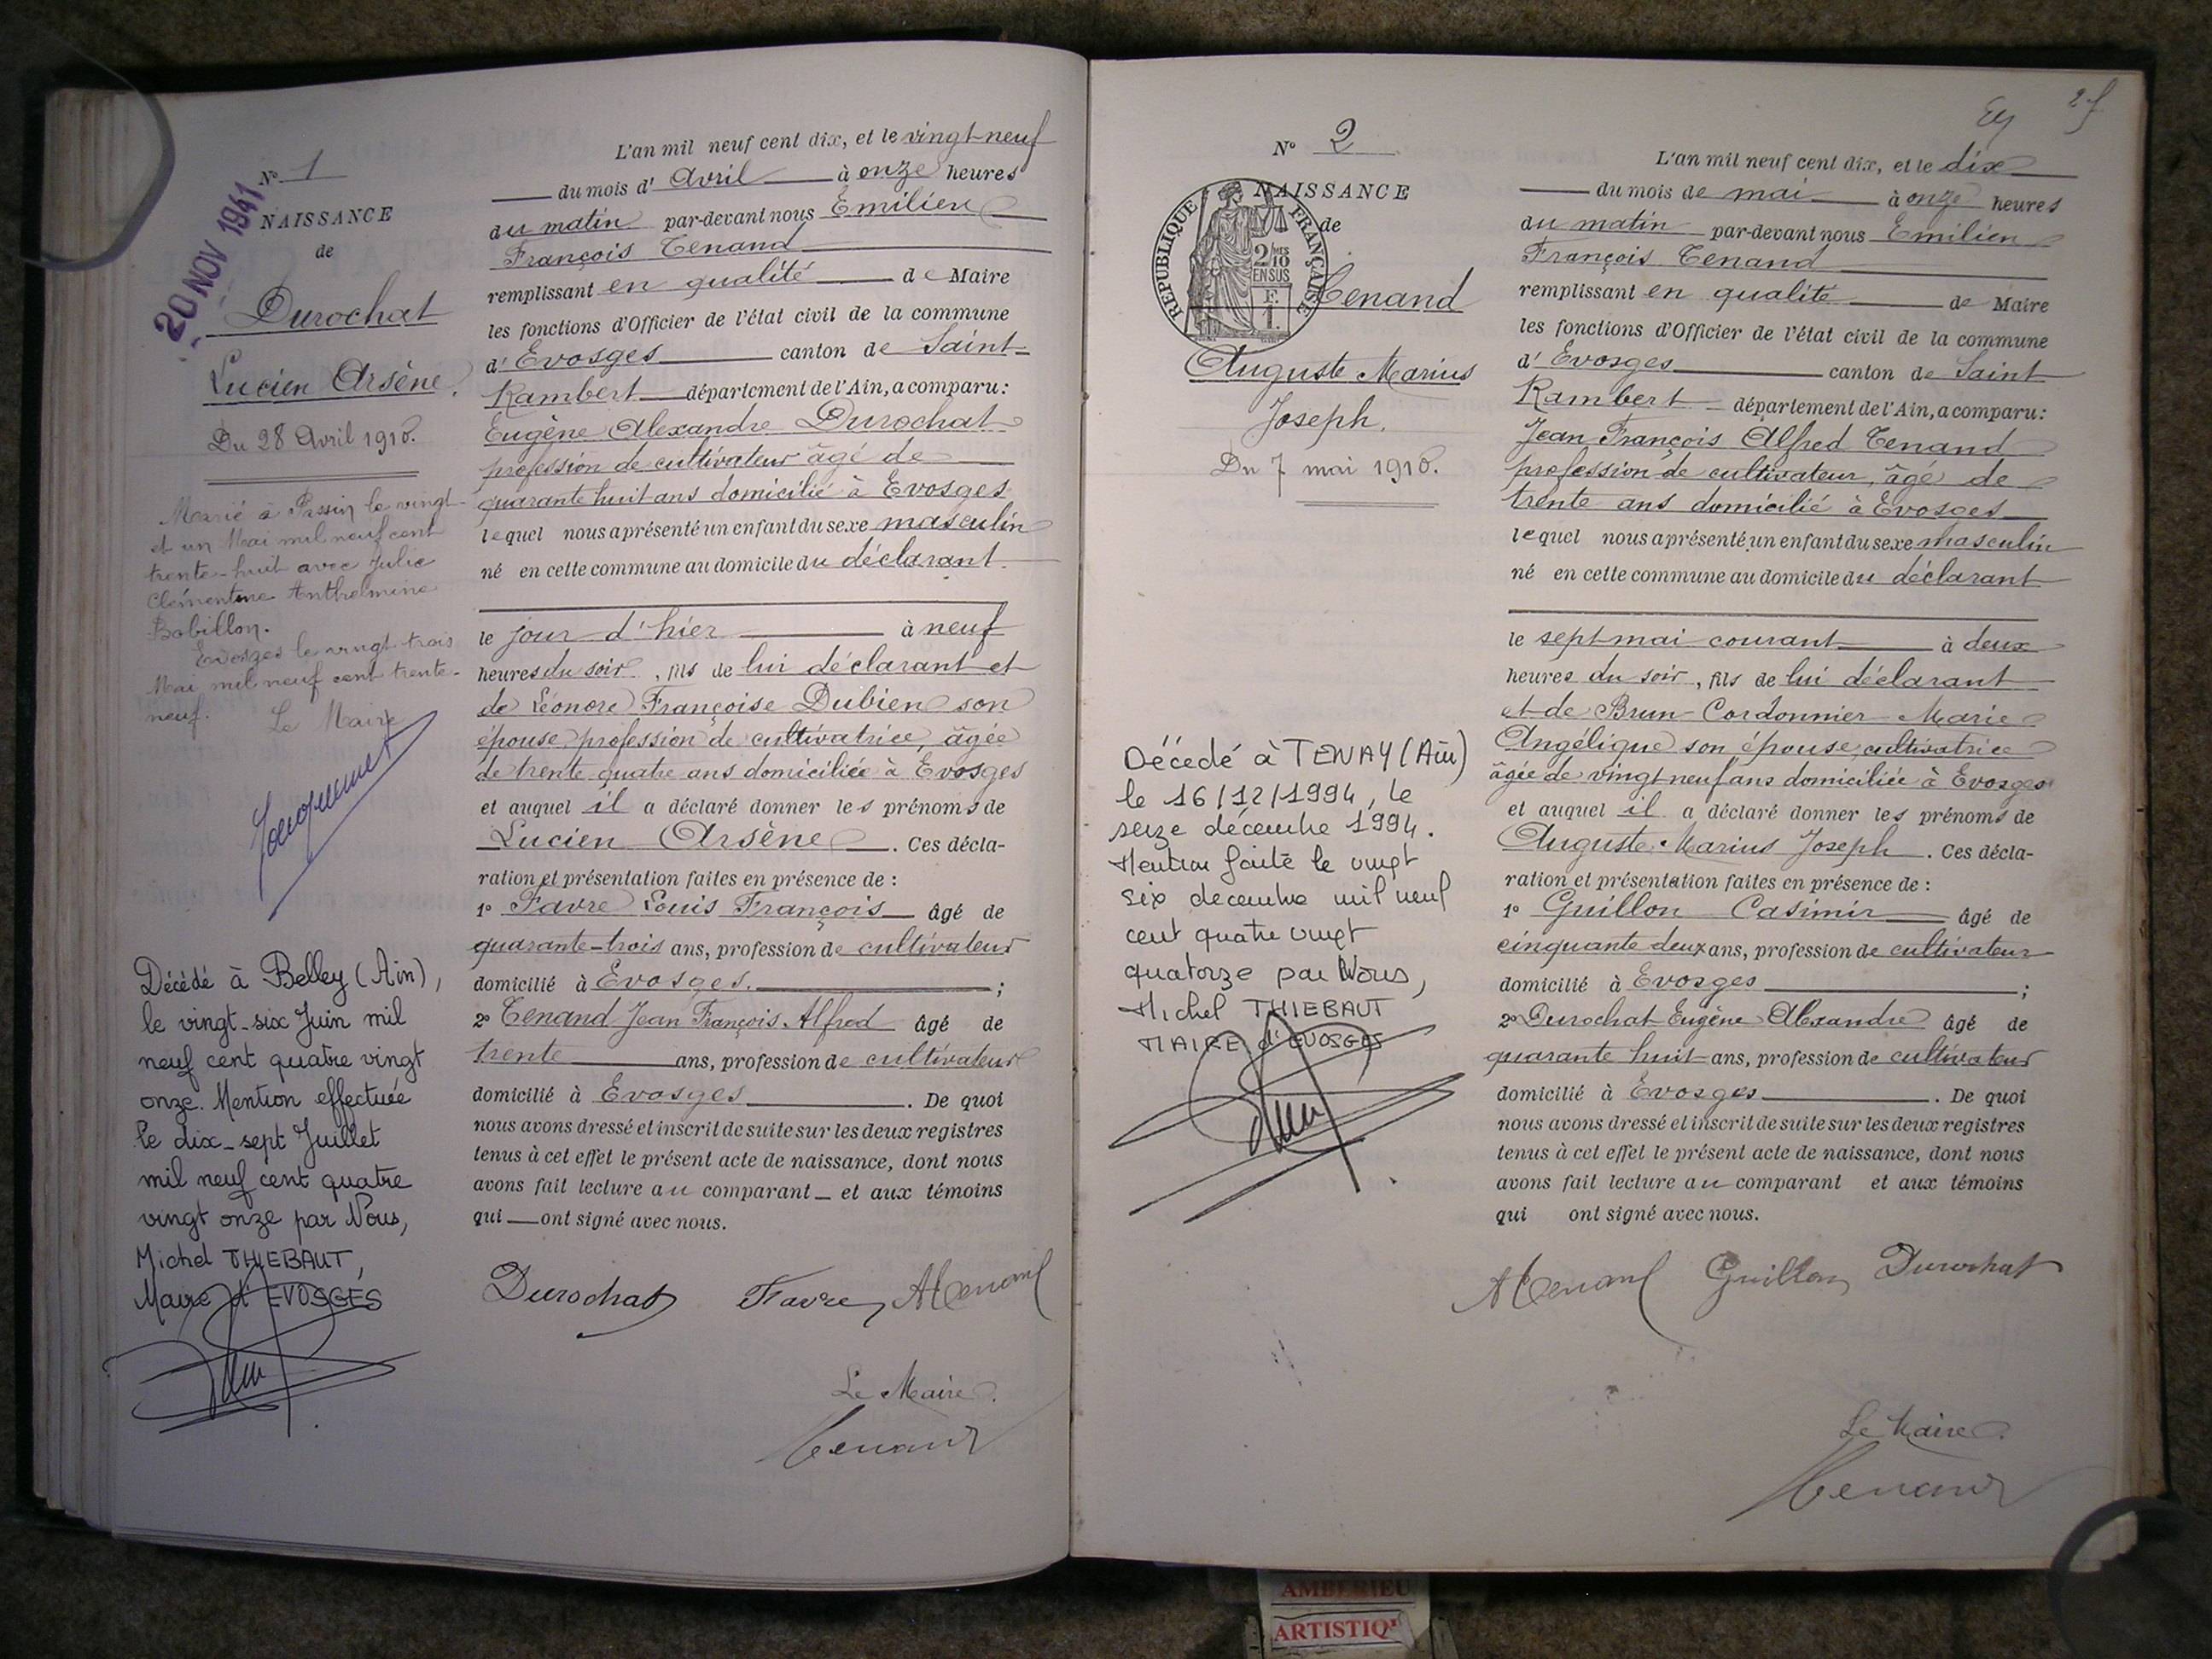 N° 1
NAISSANCE
de
Durochat
Lucien Arsène.
Du 28 Avril 1910.
20 NOV 1941
Marié à Passin le vingt-
et un Mai mil neuf cent
trente-huit avec Julie
Clémentine Anthelmine
Bobillon.
Evosges le vingt trois
Mai mil neuf cent trente-
neuf. Le Maire
Décédé à Belley (Ain),
le vingt-six Juin mil
neuf cent quatre vingt
onze. Mention effectuée
le dix-sept Juillet
mil neuf cent quatre
vingt onze par Nous,
Michel THIEBAUT,
Maire d'EVOSGES
L'an mil neuf cent dix, et le vingt-neuf
du mois d'Avril à onze heures
du matin par-devant nous Emilien
François Tenand
remplissant en qualité de Maire
les fonctions d'Officier de l'état civil de la commune
d'Evosges canton de Saint-
Rambert département de l'Ain, a comparu:
Eugène Alexandre Durochat
profession de cultivateur âgé de
quarante huit ans domicilié à Evosges
lequel nous a présenté un enfant du sexe masculin
né en cette commune au domicile du déclarant.
le jour d'hier à neuf
heures du soir, fils de lui déclarant et
de Léonore Françoise Dubien son
épouse, profession de cultivatrice, âgée
de trente quatre ans domiciliée à Evosges
et auquel il a déclaré donner les prénoms de
Lucien Arsène. Ces décla-
ration et présentation faites en présence de :
1° Favre Louis François âgé de
quarante-trois ans, profession de cultivateur
domicilié à Evosges. ;
2° Tenand Jean François Alfred âgé de
trente ans, profession de cultivateur
domicilié à Evosges. De quoi
nous avons dressé et inscrit de suite sur les deux registres
tenus à cet effet le présent acte de naissance, dont nous
avons fait lecture au comparant et aux témoins
qui ont signé avec nous.
Durochat Favre ATenand
Le Maire.
Tenand
N° 2
NAISSANCE
de
REPUBLIQUE FRANÇAISE
2/10 EN SUS
F.
1.
Tenand
Auguste Marius
Joseph.
Du 7 mai 1910.
Décédé à TENAY (Ain)
le 16/12/1994, le
seize décembre 1994.
Mention faite le vingt
six decembre mil neuf
cent quatre vingt
quatorze par Nous,
Michel THIEBAUT
MAIRE d'EVOSGES
L'an mil neuf cent dix, et le dix
du mois de mai à onze heures
du matin par-devant nous Emilien
François Tenand
remplissant en qualité de Maire
les fonctions d'Officier de l'état civil de la commune
d'Evosges canton de Saint
Rambert département de l'Ain, a comparu:
Jean François Alfred Tenand
profession de cultivateur, âgé de
trente ans domicilié à Evosges
lequel nous a présenté un enfant du sexe masculin
né en cette commune au domicile du déclarant
le sept mai courant à deux
heures du soir, fils de lui déclarant
et de Brun-Cordonnier Marie
Angélique son épouse, cultivatrice
âgée de vingt neuf ans domiciliée à Evosges
et auquel il a déclaré donner les prénoms de
Auguste Marius Joseph. Ces décla-
ration et présentation faites en présence de :
1° Guillon Casimir âgé de
cinquante deux ans, profession de cultivateur
domicilié à Evosges ;
2° Durochat Eugène Alexandre âgé de
quarante huit ans, profession de cultivateur
domicilié à Evosges. De quoi
nous avons dressé et inscrit de suite sur les deux registres
tenus à cet effet le présent acte de naissance, dont nous
avons fait lecture au comparant et aux témoins
qui ont signé avec nous.
ATenand Guillon Durochat
Le Maire.
Tenand
AMBERIEU
ARTISTIQ